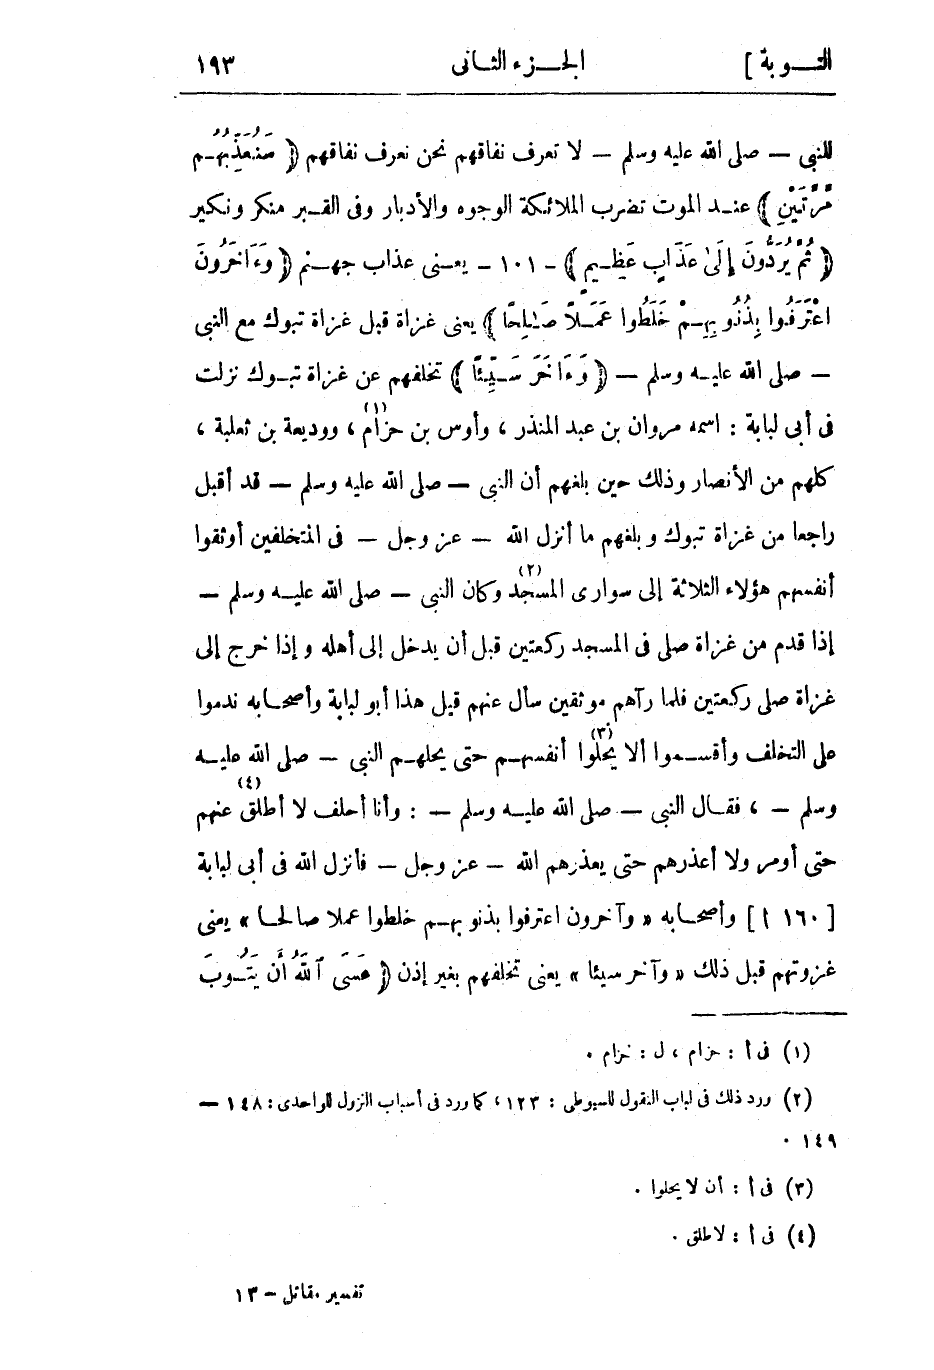 التوبة] الجزء الثانى ١٩٣
للنبى — صلى الله عليه وسلم — لا تعرف نفاقهم نحن نعرف نفاقهم ﴿ سَنُعَذِّبُهُم
مَّرَّتَيْنِ ﴾ عند الموت تضرب الملائكة الوجوه والأدبار وفى القبر منكر ونكير
﴿ ثُمَّ يُرَدُّونَ إِلَىٰ عَذَابٍ عَظِيمٍ ﴾ - ١٠١ - يعنى عذاب جهنم ﴿ وَءَاخَرُونَ
اعْتَرَفُوا بِذُنُوبِهِمْ خَلَطُوا عَمَلًا صَـٰلِحًا ﴾ يعنى غزاة قبل غزاة تبوك مع النبى
— صلى الله عليه وسلم — ﴿ وَءَاخَرَ سَيِّئًا ﴾ تخلفهم عن غزاة تبوك نزلت
فى أبى لبابة : اسمه مروان بن عبد المنذر ، وأوس بن حزام (١) ، ووديعة بن ثعلبة ،
كلهم من الأنصار وذلك حين بلغهم أن النبى — صلى الله عليه وسلم — قد أقبل
راجعا من غزاة تبوك وبلغهم ما أنزل الله — عز وجل — فى المتخلفين أوثقوا
أنفسهم هؤلاء الثلاثة إلى سوارى المسجد (٢) وكان النبى — صلى الله عليه وسلم —
إذا قدم من غزاة صلى فى المسجد ركعتين قبل أن يدخل إلى أهله وإذا خرج إلى
غزاة صلى ركعتين فلما رآهم موثقين سأل عنهم قيل هذا أبو لبابة وأصحابه ندموا
على التخلف وأقسموا ألا يحلوا (٣) أنفسهم حتى يحلهم النبى — صلى الله عليه
وسلم — ، فقال النبى — صلى الله عليه وسلم — : وأنا أحلف لا أطلق (٤) عنهم
حتى أومر ولا أعذرهم حتى يعذرهم الله — عز وجل — فأنزل الله فى أبى لبابة
[ ١٦٠ أ ] وأصحابه « وآخرون اعترفوا بذنوبهم خلطوا عملا صالحا » يعنى
غزوتهم قبل ذلك « وآخر سيئا » يعنى تخلفهم بغير إذن ﴿ عَسَى ٱللَّهُ أَن يَتُوبَ
(١) فى أ : حزام ، ل : خزام .
(٢) ورد ذلك فى لباب النقول للسيوطى : ١٢٣ ، كما ورد فى أسباب النزول للواحدى : ١٤٨ —
١٤٩ .
(٣) فى أ : أن لا يحلوا .
(٤) فى أ : لاطلق .
تفسير مقاتل - ١٣